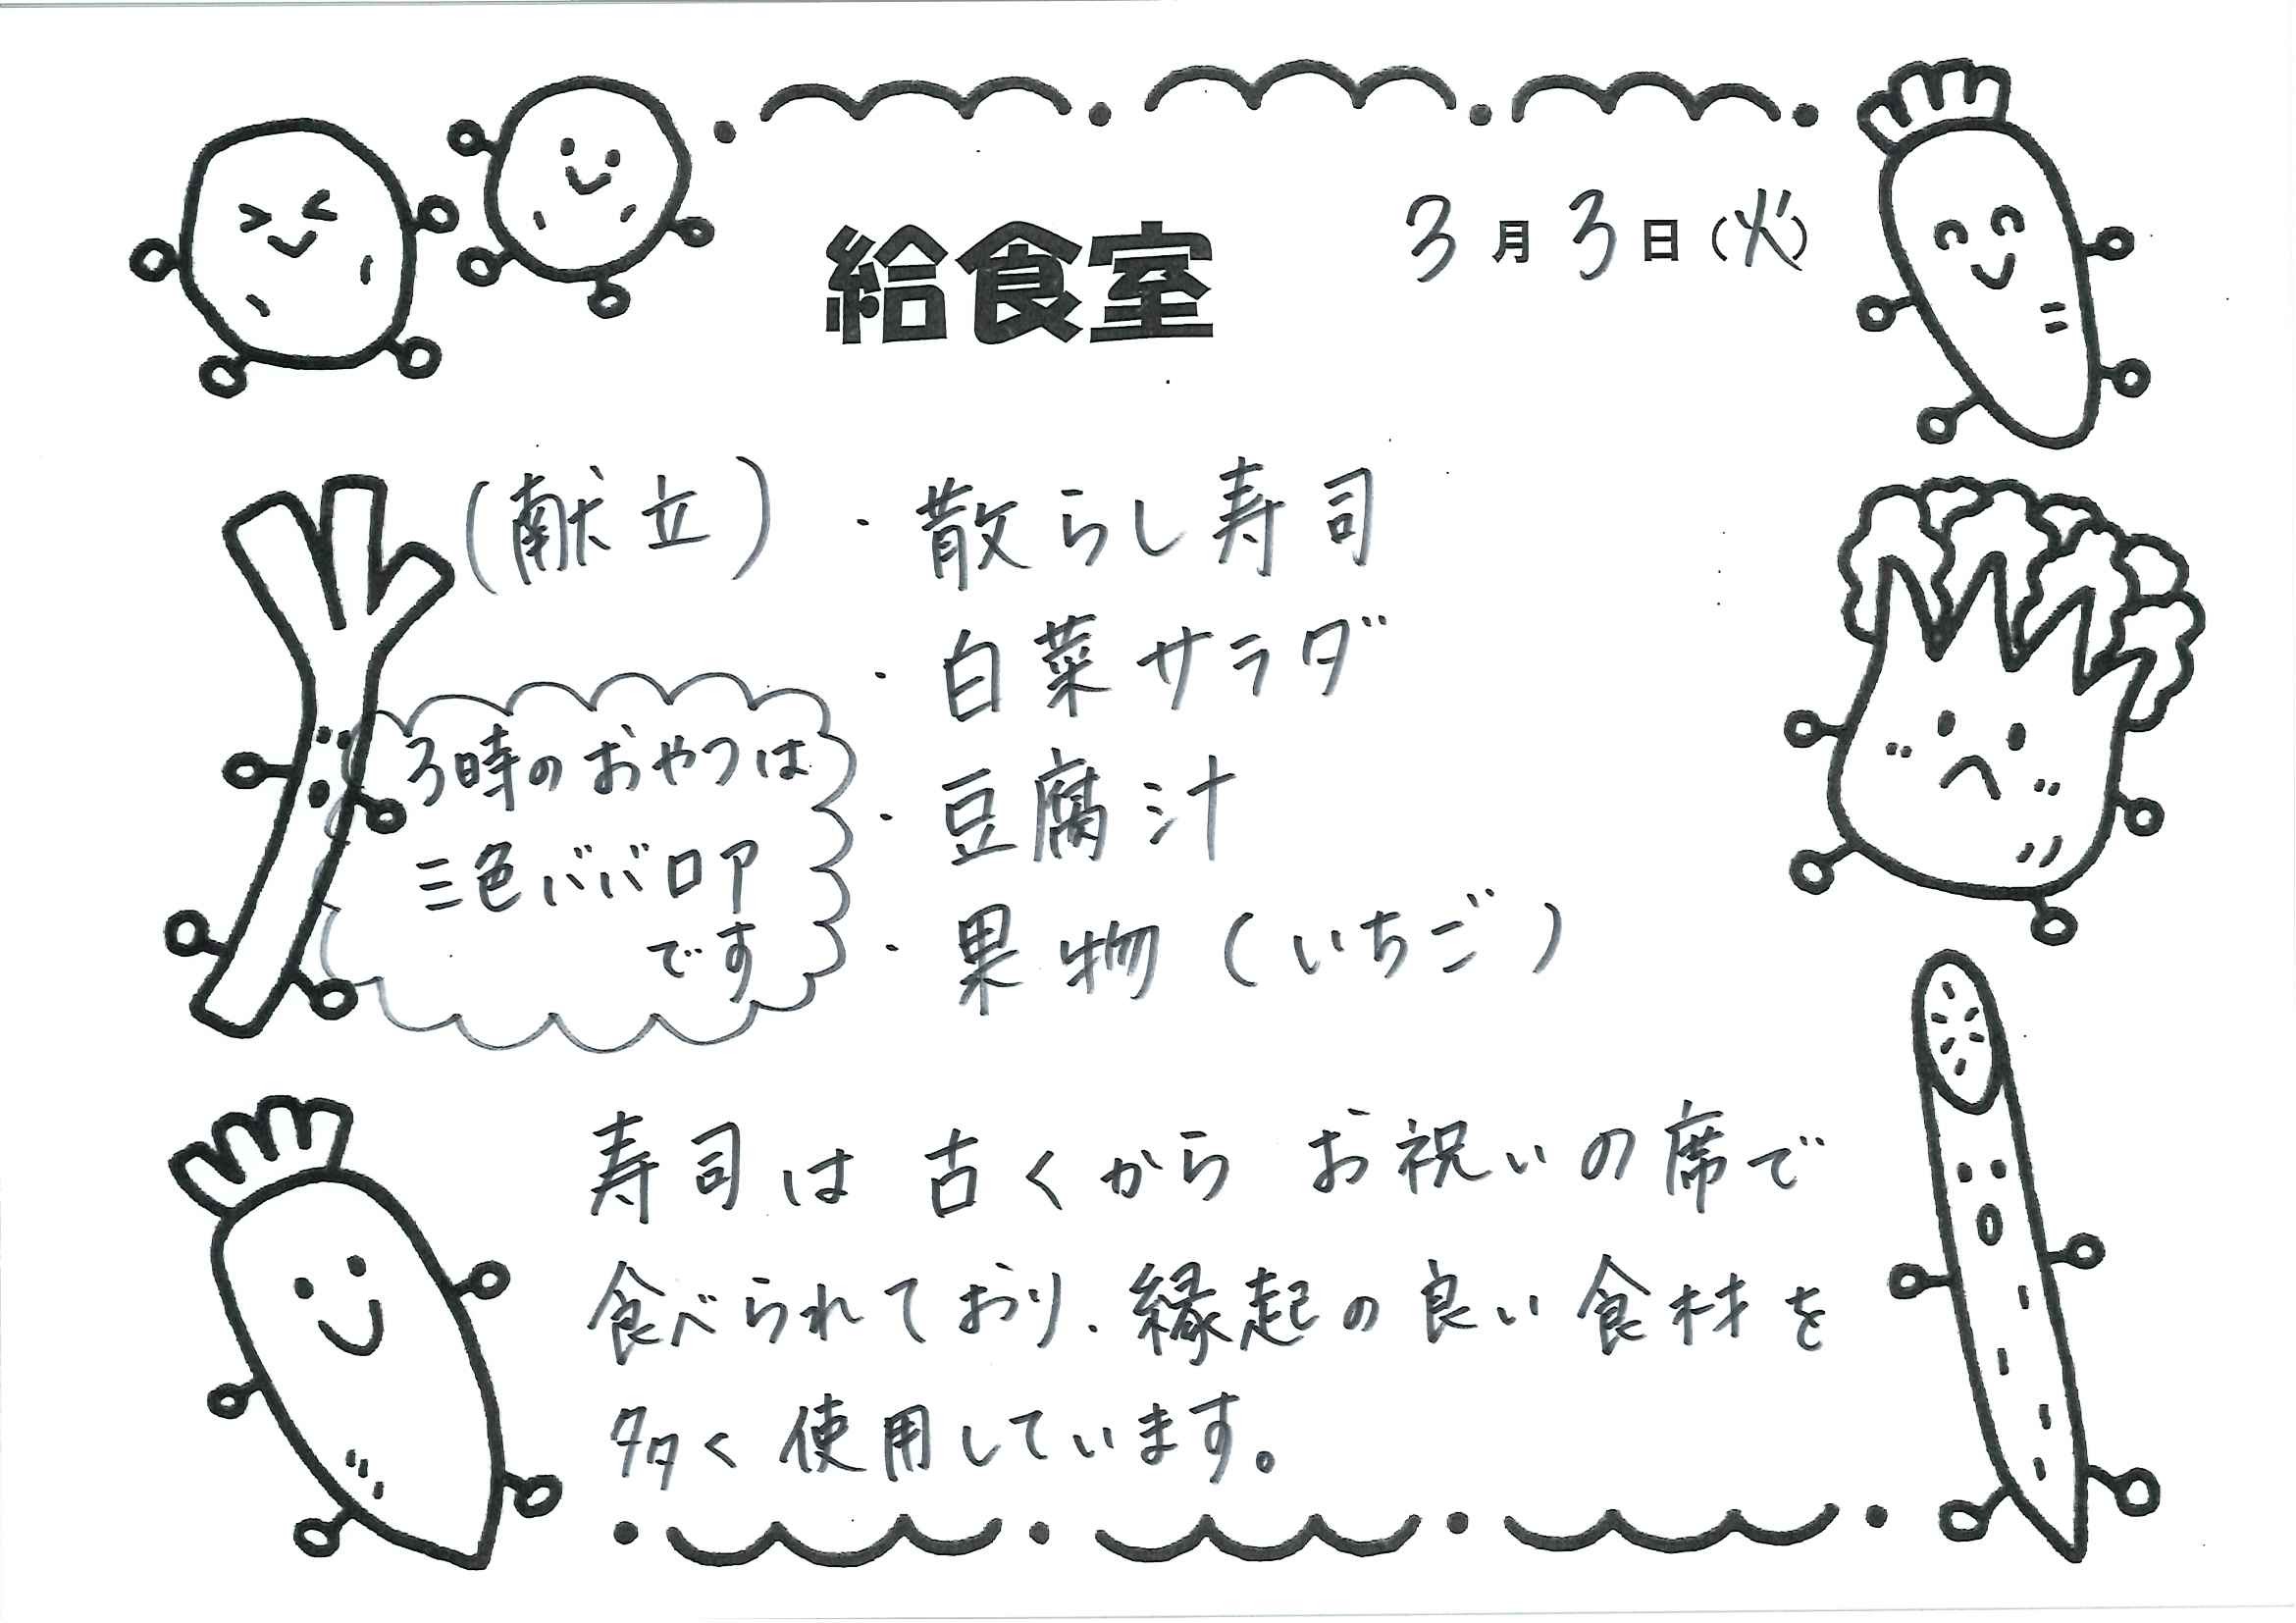 給食室
3月3日(火)
(献立)・散らし寿司
・白菜サラダ
・豆腐汁
・果物(いちご)
3時のおやつは
三色ババロア
です
寿司は古くからお祝いの席で
食べられており、縁起の良い食材を
多く使用しています。